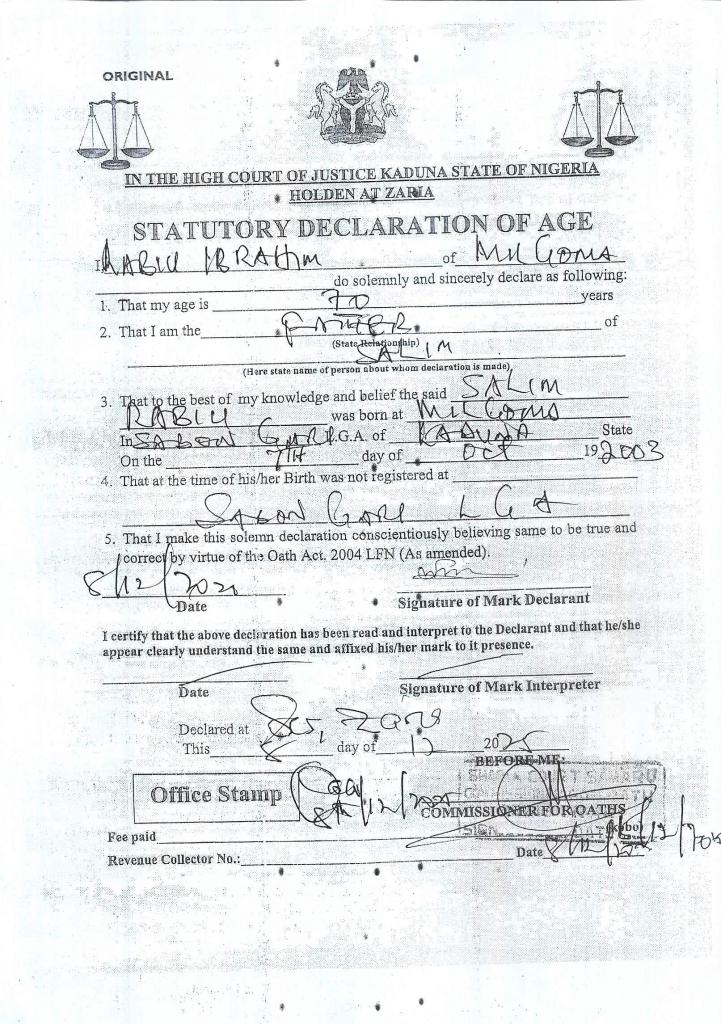 ORIGINAL
IN THE HIGH COURT OF JUSTICE KADUNA STATE OF NIGERIA
HOLDEN AT ZARIA
STATUTORY DECLARATION OF AGE
I RABIU IBRAHIM of MILGOMA
do solemnly and sincerely declare as following:
1. That my age is 70 years
2. That I am the FATHER of
(State Relationship)
SALIM
(Here state name of person about whom declaration is made)
3. That to the best of my knowledge and belief the said SALIM
RABIU was born at MILGOMA
In SABON GARI L.G.A. of KADUNA State
On the 7TH day of OCT 19 2003
4. That at the time of his/her Birth was not registered at
SABON GARI LGA
5. That I make this solemn declaration conscientiously believing same to be true and
correct by virtue of the Oath Act, 2004 LFN (As amended).
8/12/202
Date Signature of Mark Declarant
I certify that the above declaration has been read and interpret to the Declarant and that he/she
appear clearly understand the same and affixed his/her mark to it presence.
Date Signature of Mark Interpreter
Declared at
This 8 day of 12 2025
BEFORE ME:
Office Stamp
COMMISSIONER FOR OATHS
Fee paid (kobo)
Revenue Collector No.: Date